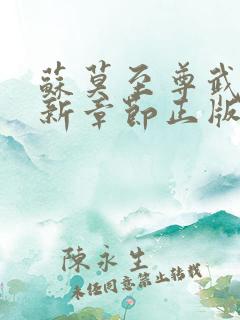 蘇莫至尊武
新章節正版
陳永生
未經同意禁止轉載